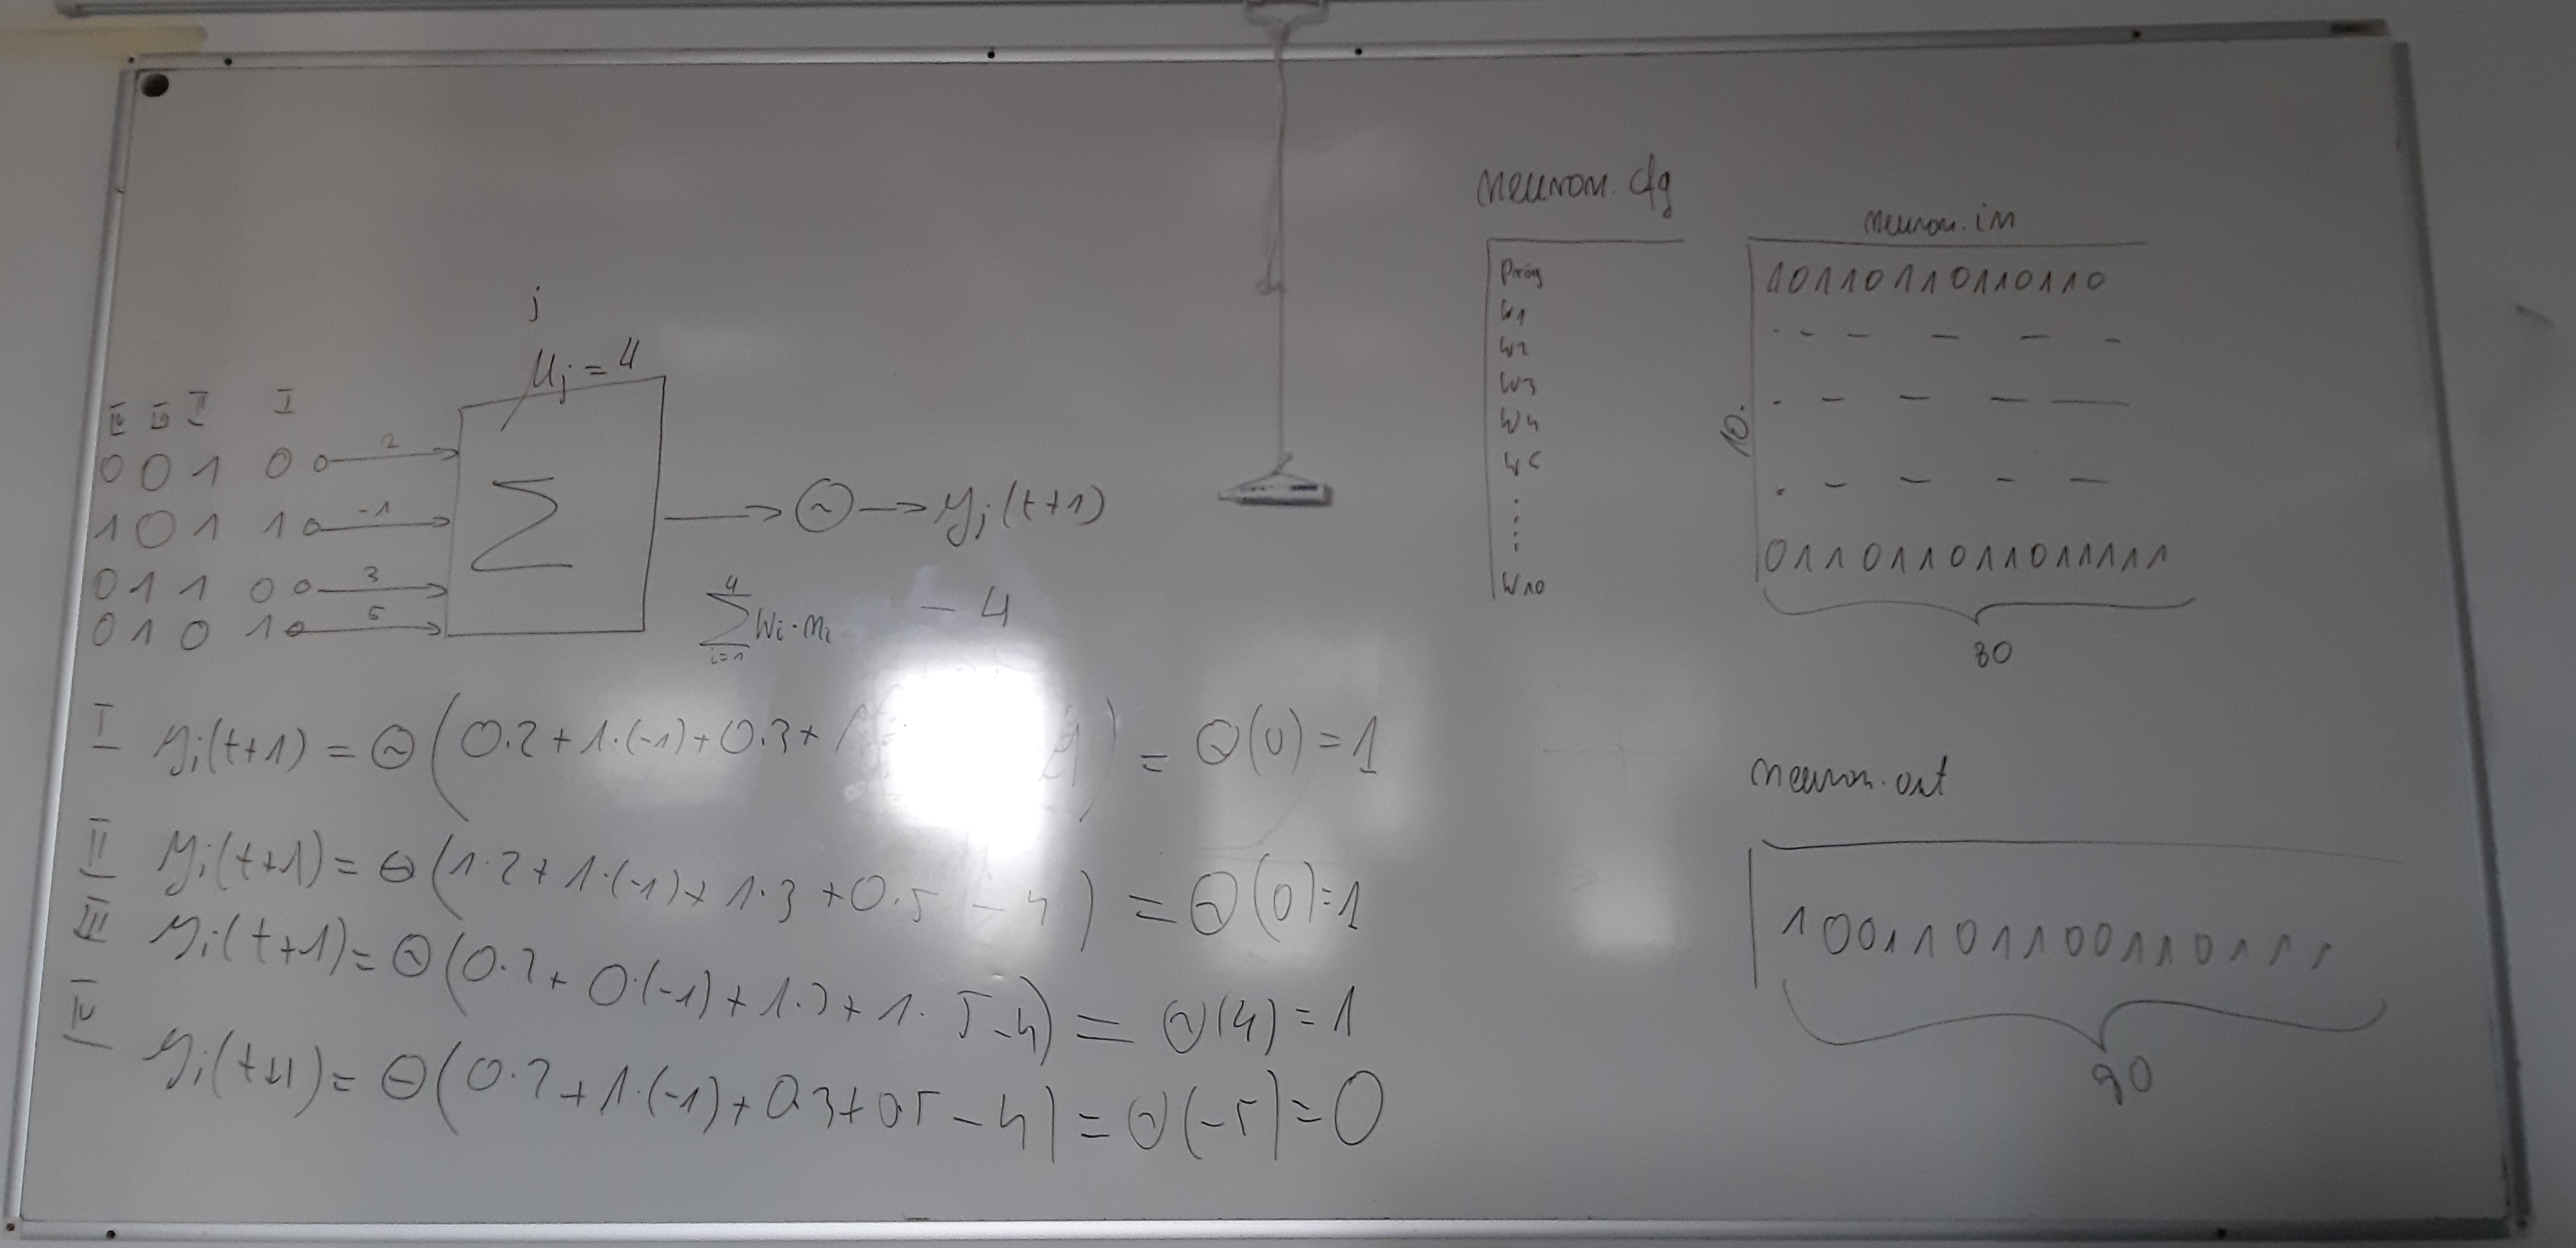 j
μj = 4
IV III II I
0 0 1 0 2
1 0 1 1 -1
0 1 1 0 3
0 1 0 1 5
Σ → Θ → yj(t+1)
4
Σ wi·ni - 4
i=1
I yj(t+1) = Θ(0·2+1·(-1)+0·3+ 4) = Θ(0)=1
II yj(t+1)= Θ(1·2+1·(-1)+1·3+0·5 - 4) = Θ(0)=1
III yj(t+1)= Θ(0·2+0·(-1)+1·3+1·5-4) = Θ(4)=1
IV yj(t+1)= Θ(0·2+1·(-1)+0·3+0·5-4) = Θ(-5)=0
neuron.cfg
próg
w1
w2
w3
w4
w5
w10
neuron.in
101101101101110
10.
0110110110111111
80
neuron.out
10011011001101111